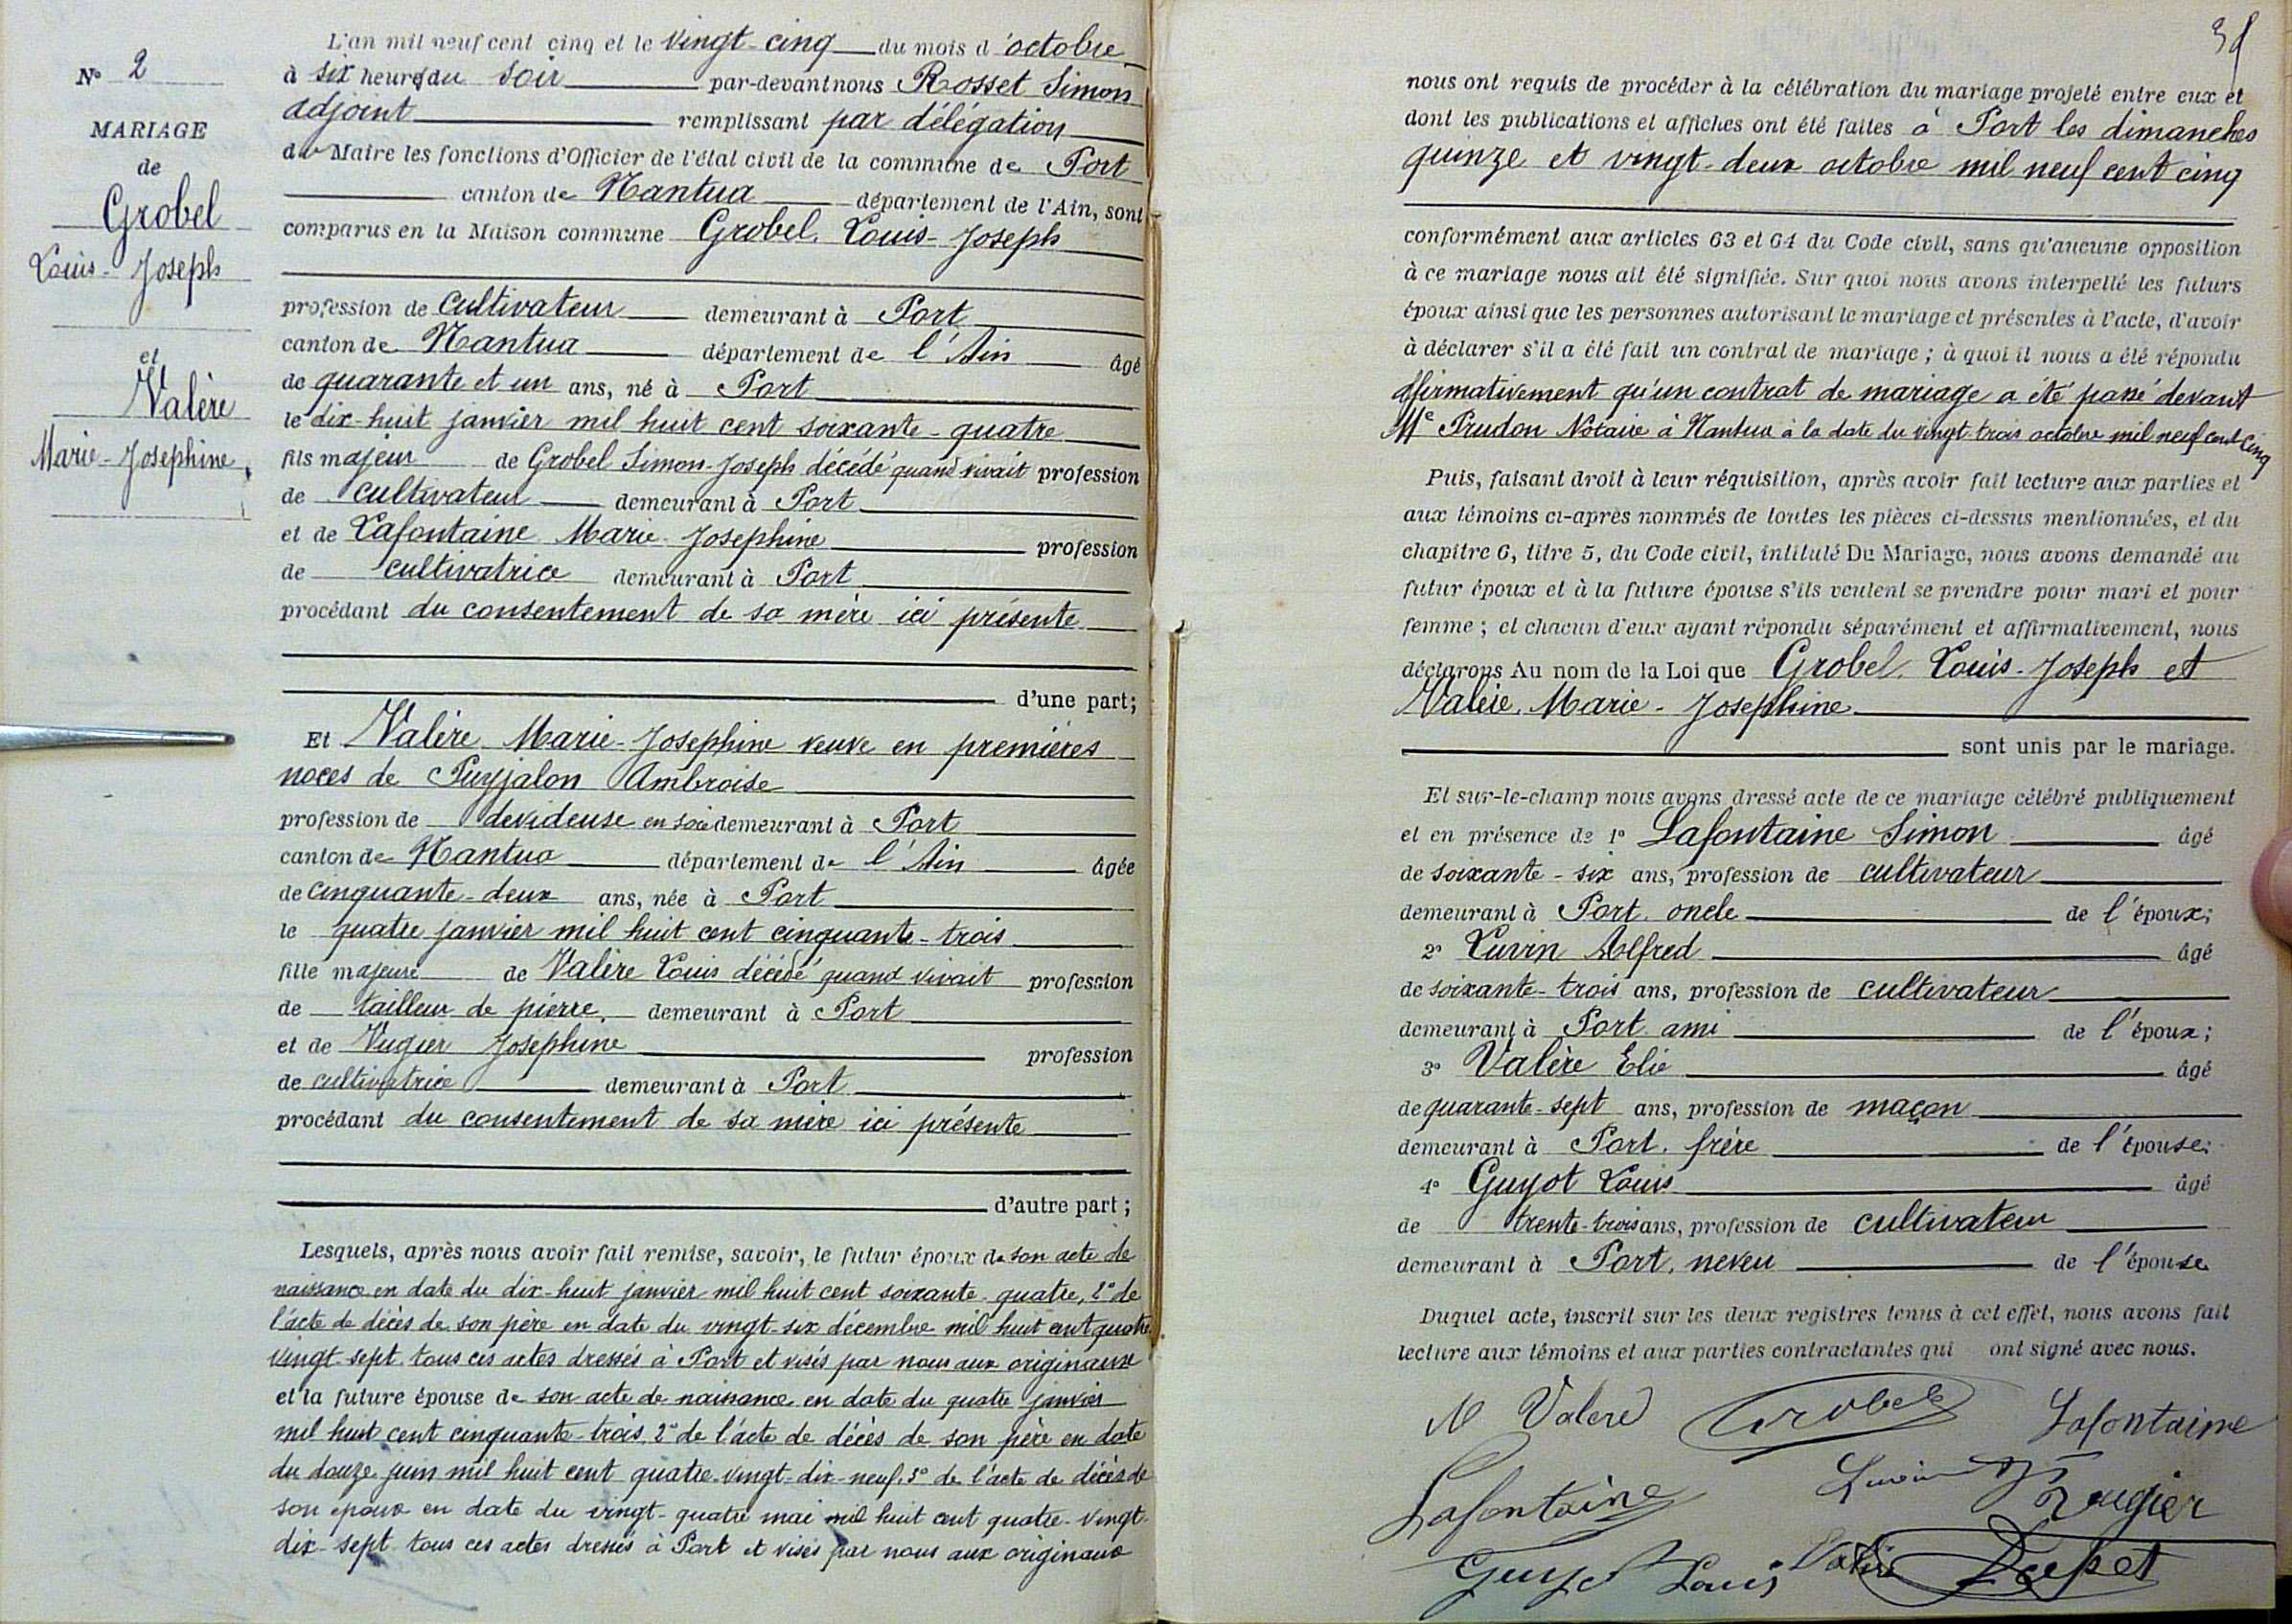 N° 2
MARIAGE
de
Grobel
Louis-Joseph
et
Valère
Marie-Josephine
L'an mil neuf cent cinq et le vingt-cinq du mois d'octobre
à six heures du soir par-devant nous Rosset Simon
adjoint remplissant par délégation
du Maire les fonctions d'Officier de l'état civil de la commune de Port
canton de Nantua département de l'Ain, sont
comparus en la Maison commune Grobel Louis-Joseph
profession de cultivateur demeurant à Port
canton de Nantua département de l'Ain âgé
de quarante et un ans, né à Port
le dix-huit janvier mil huit cent soixante-quatre
fils majeur de Grobel Simon-Joseph décédé quand vivait profession
de cultivateur demeurant à Port
et de Lafontaine Marie-Josephine profession
de cultivatrice demeurant à Port
procédant du consentement de sa mère ici présente
d'une part;
Et Valère Marie-Josephine veuve en premières
noces de Puyjalon Ambroise
profession de devideuse en soie demeurant à Port
canton de Nantua département de l'Ain âgée
de cinquante-deux ans, née à Port
le quatre janvier mil huit cent cinquante-trois
fille majeure de Valère Louis décédé quand vivait profession
de tailleur de pierre, demeurant à Port
et de Vugier Josephine profession
de cultivatrice demeurant à Port
procédant du consentement de sa mère ici présente
d'autre part;
Lesquels, après nous avoir fait remise, savoir, le futur époux de son acte de
naissance en date du dix-huit janvier mil huit cent soixante-quatre, 2° de
l'acte de décès de son père en date du vingt-six décembre mil huit cent quatre
vingt-sept tous ces actes dressés à Port et visés par nous aux originaux
et la future épouse de son acte de naissance en date du quatre janvier
mil huit cent cinquante-trois, 2° de l'acte de décès de son père en date
du douze juin mil huit cent quatre-vingt-dix-neuf, 3° de l'acte de décès de
son époux en date du vingt-quatre mai mil huit cent quatre-vingt-
dix-sept tous ces actes dressés à Port et visés par nous aux originaux
nous ont requis de procéder à la célébration du mariage projeté entre eux et
dont les publications et affiches ont été faites à Port les dimanches
quinze et vingt-deux octobre mil neuf cent cinq
conformément aux articles 63 et 64 du Code civil, sans qu'aucune opposition
à ce mariage nous ait été signifiée. Sur quoi nous avons interpellé les futurs
époux ainsi que les personnes autorisant le mariage et présentes à l'acte, d'avoir
à déclarer s'il a été fait un contrat de mariage ; à quoi il nous a été répondu
affirmativement qu'un contrat de mariage a été passé devant
Me Prudon Notaire à Nantua à la date du vingt-trois octobre mil neuf cent cinq
Puis, faisant droit à leur réquisition, après avoir fait lecture aux parties et
aux témoins ci-après nommés de toutes les pièces ci-dessus mentionnées, et du
chapitre 6, titre 5, du Code civil, intitulé Du Mariage, nous avons demandé au
futur époux et à la future épouse s'ils veulent se prendre pour mari et pour
femme ; et chacun d'eux ayant répondu séparément et affirmativement, nous
déclarons Au nom de la Loi que Grobel Louis-Joseph et
Valère Marie-Josephine
sont unis par le mariage.
Et sur-le-champ nous avons dressé acte de ce mariage célébré publiquement
et en présence de 1° Lafontaine Simon âgé
de soixante-six ans, profession de cultivateur
demeurant à Port, oncle de l'époux;
2° Luvin Alfred âgé
de soixante-trois ans, profession de cultivateur
demeurant à Port ami de l'époux;
3° Valère Elie âgé
de quarante-sept ans, profession de maçon
demeurant à Port, frère de l'épouse;
4° Guyot Louis âgé
de trente-trois ans, profession de cultivateur
demeurant à Port, neveu de l'épouse
Duquel acte, inscrit sur les deux registres tenus à cet effet, nous avons fait
lecture aux témoins et aux parties contractantes qui ont signé avec nous.
Valere Grobel Lafontaine
Lafontaine Luvin
Guyot Louis Valère